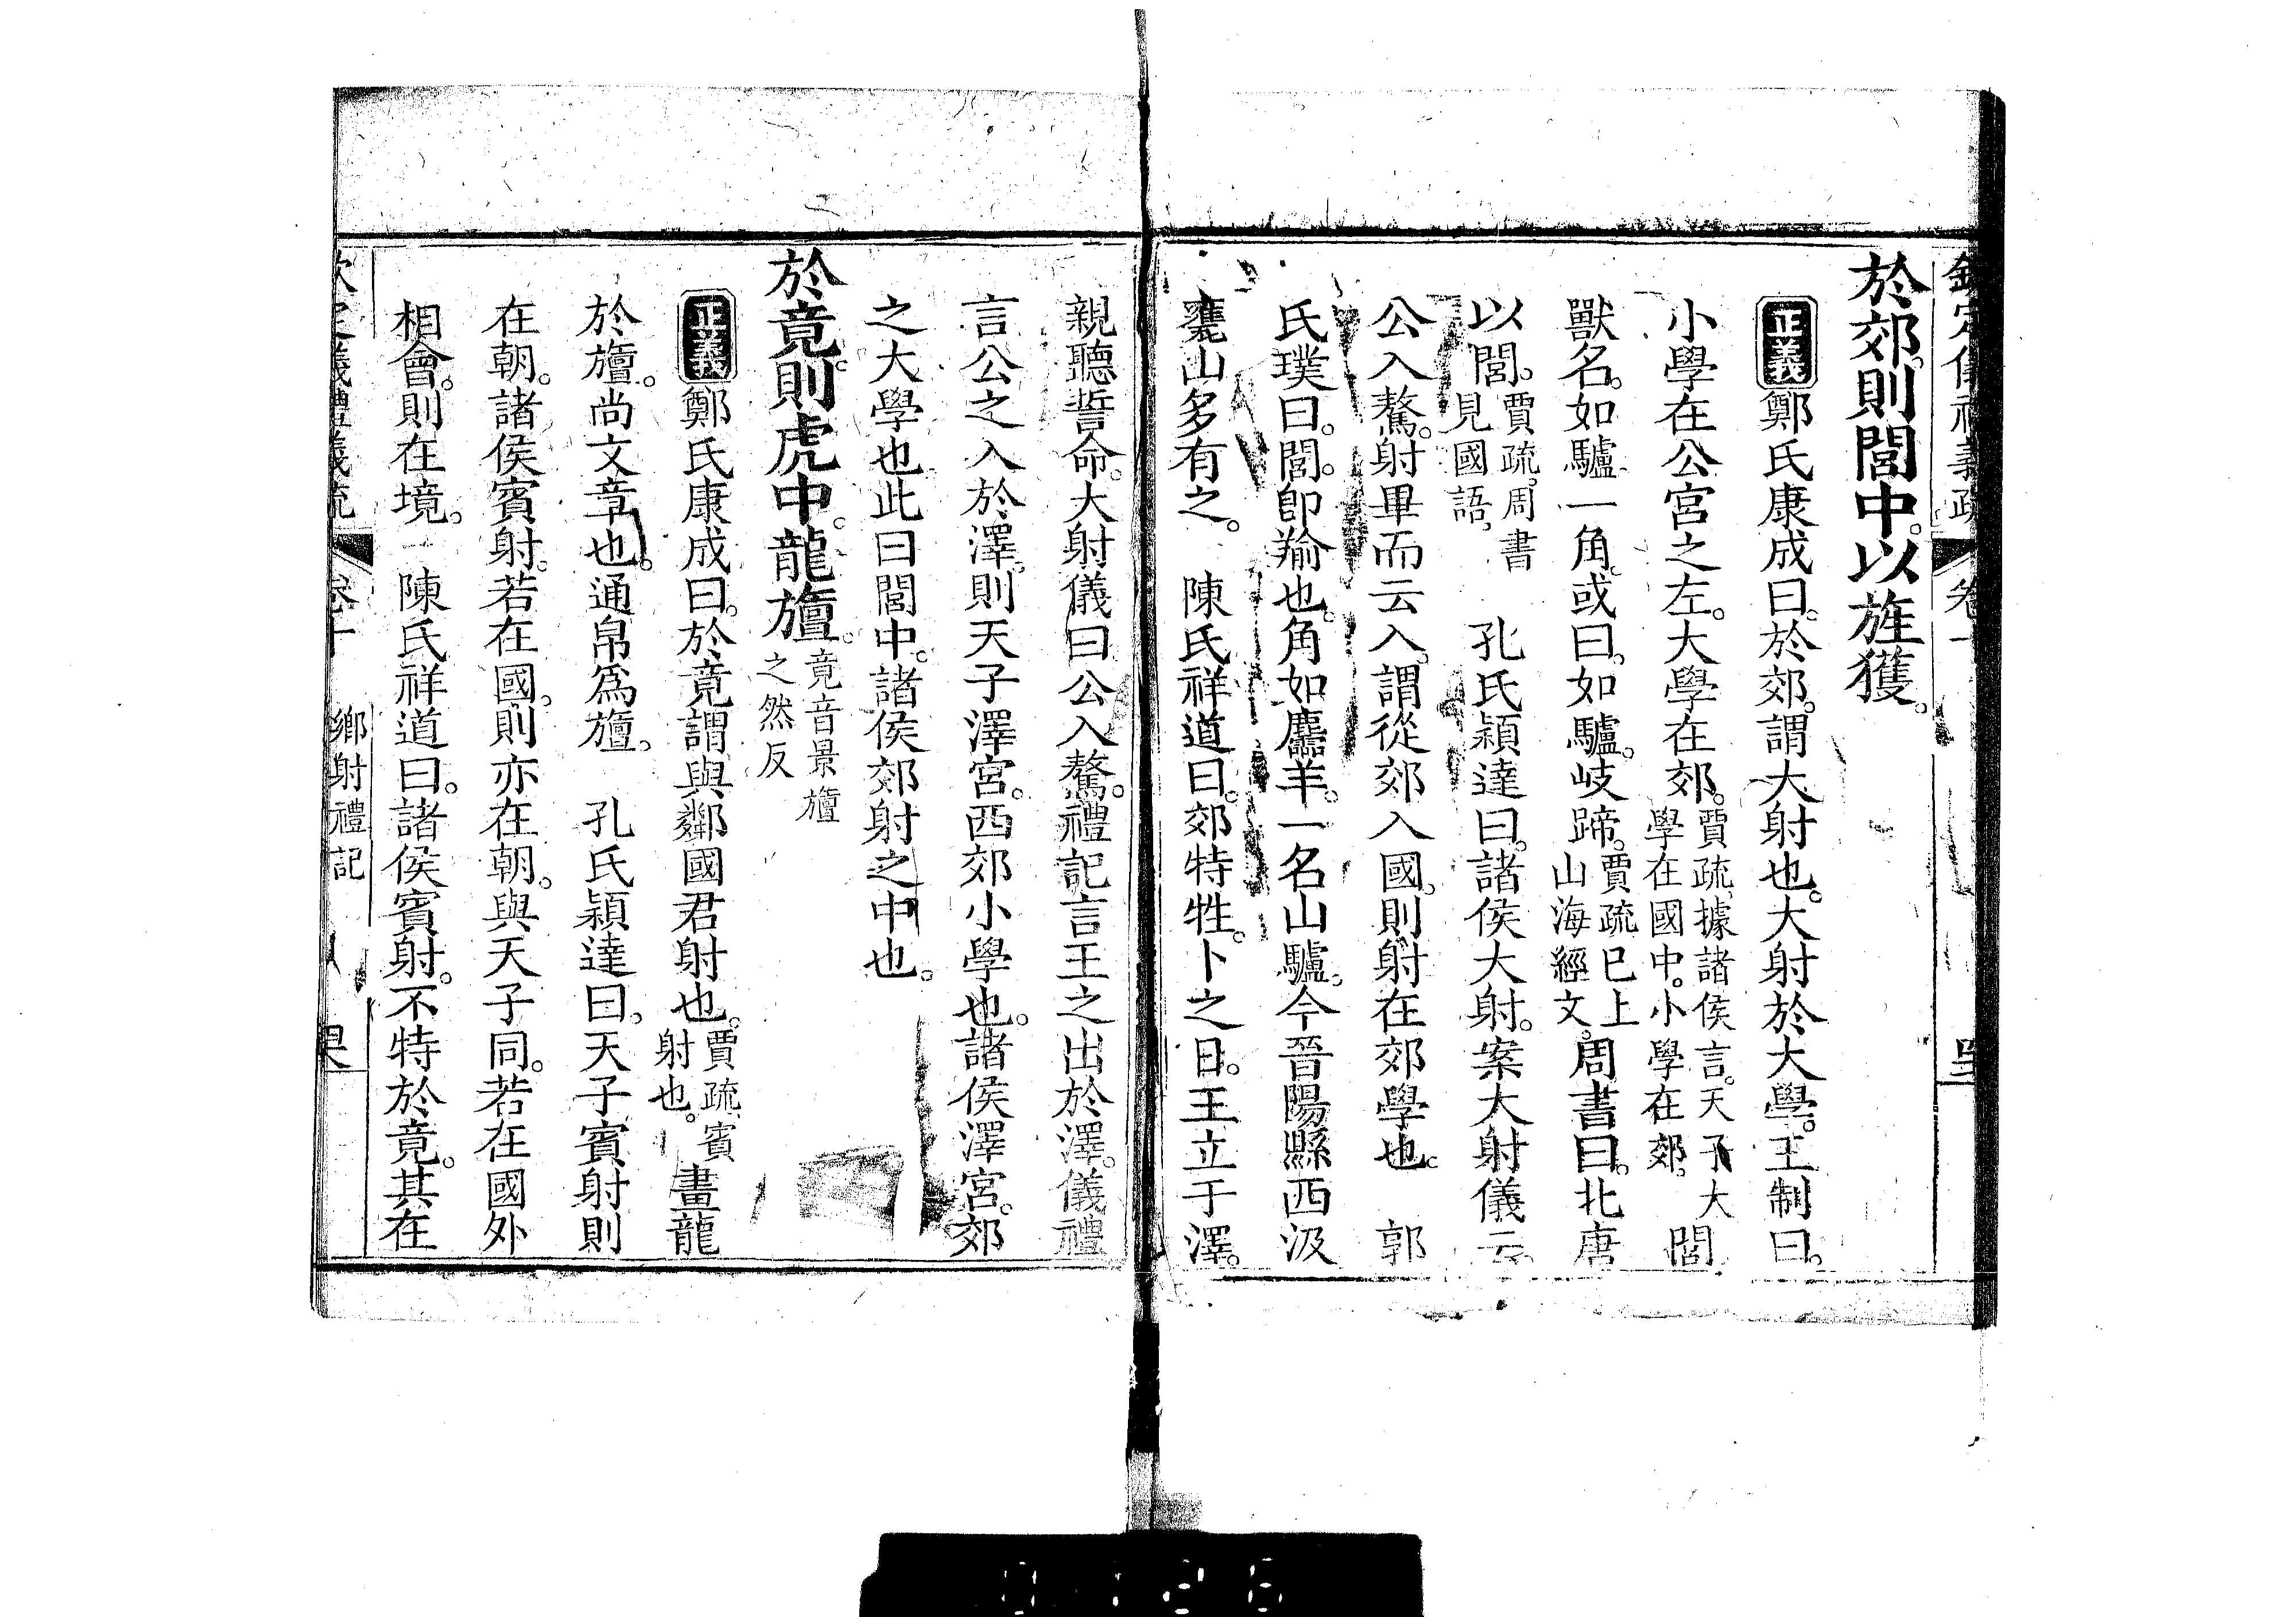 於郊。則閭中。以旌獲。
正義鄭氏康成曰。於郊。謂大射也。大射於大學。王制曰。
小學在公宮之左。大學在郊。賈疏。據諸侯言。天子大學在國中。小學在郊。閭
獸名。如驢一角。或曰。如驢。岐蹄。賈疏已上山海經文。周書曰。北唐
以閭。賈疏。周書見國語。 孔氏穎達曰。諸侯大射。案大射儀云。
公入驁。射畢而云入。謂從郊入國。則射在郊學也。 郭
氏璞曰。閭。卽羭也。角如麢羊。一名山驢。今晉陽縣西汲
甕山多有之。 陳氏祥道曰。郊特牲。卜之日。王立于澤。
親聽誓命。大射儀曰公入驁。禮記言王之出於澤。儀禮
言公之入於澤。則天子澤宮。西郊小學也。諸侯澤宮。郊
之大學也。此曰閭中。諸侯郊射之中也。
於竟。則虎中。龍旜。竟音景旜之然反
正義鄭氏康成曰。於竟謂與鄰國君射也。賈疏。賓射也。畫龍
於旜。尚文章也。通帛爲旜。 孔氏穎達曰。天子賓射則
在朝。諸侯賓射。若在國。則亦在朝。與天子同。若在國外
相會。則在境。 陳氏祥道曰。諸侯賓射。不特於竟。其在
鄉射禮記